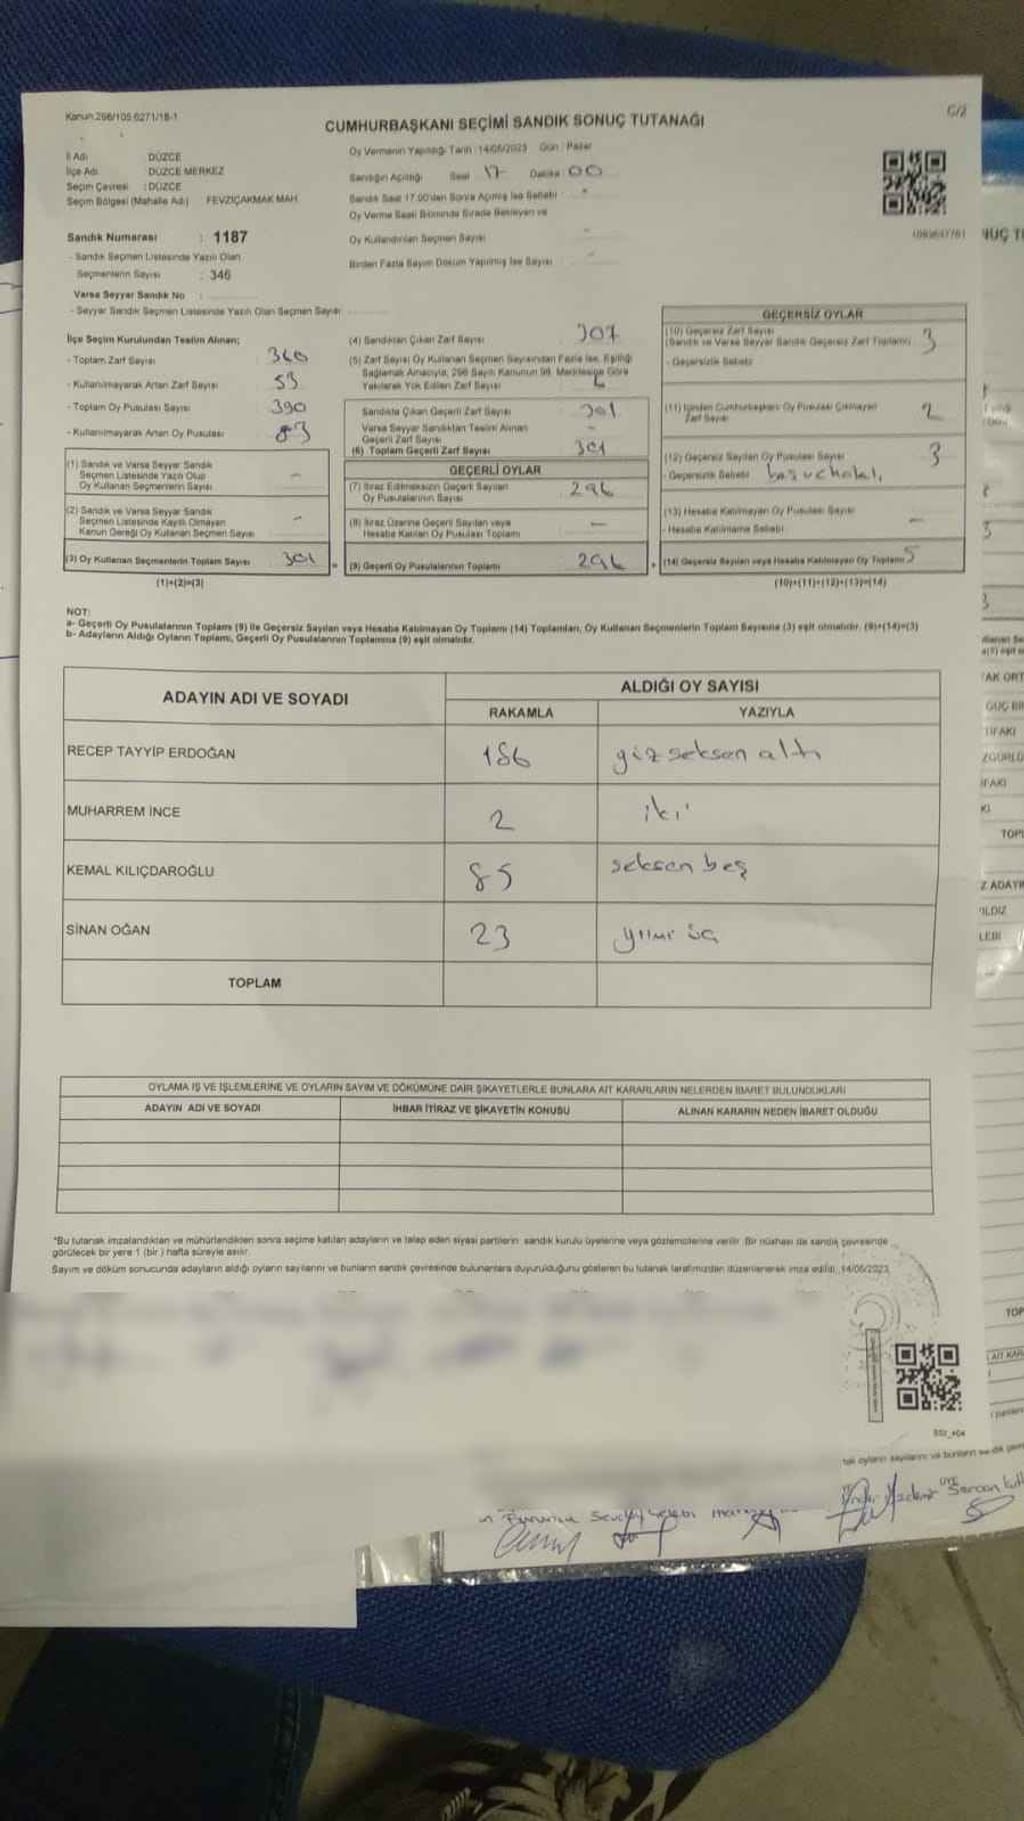 Kanun.298/105.6271/18-1
CUMHURBAŞKANI SEÇİMİ SANDIK SONUÇ TUTANAĞI
Oy Vermenin Yapıldığı Tarih :14/05/2023 Gün : Pazar
İl Adı DÜZCE
İlçe Adı DÜZCE MERKEZ
Seçim Çevresi : DÜZCE
Seçim Bölgesi (Mahalle Adı) FEVZİÇAKMAK MAH.
Sandığın Açıldığı Saat 17 Dakika 00
Sandık Saat 17.00'den Sonra Açılmış İse Sebebi
Oy Verme Saati Bitiminde Sırada Bekleyen ve
Oy Kullandırılan Seçmen Sayısı
Birden Fazla Sayım Döküm Yapılmış İse Sayısı
Sandık Numarası : 1187
- Sandık Seçmen Listesinde Yazılı Olan
Seçmenlerin Sayısı : 346
Varsa Seyyar Sandık No
- Seyyar Sandık Seçmen Listesinde Yazılı Olan Seçmen Sayısı
İlçe Seçim Kurulundan Teslim Alınan;
- Toplam Zarf Sayısı 360
- Kullanılmayarak Artan Zarf Sayısı 53
- Toplam Oy Pusulası Sayısı 390
- Kullanılmayarak Artan Oy Pusulası 83
(1) Sandık ve Varsa Seyyar Sandık
Seçmen Listesinde Yazılı Olup
Oy Kullanan Seçmenlerin Sayısı -
(2) Sandık ve Varsa Seyyar Sandık
Seçmen Listesinde Kayıtlı Olmayan
Kanun Gereği Oy Kullanan Seçmen Sayısı -
(3) Oy Kullanan Seçmenlerin Toplam Sayısı 301
(1)+(2)=(3)
(4) Sandıktan Çıkan Zarf Sayısı 307
(5) Zarf Sayısı Oy Kullanan Seçmen Sayısından Fazla İse, Eşitliği
Sağlamak Amacıyla, 298 Sayılı Kanunun 98. Maddesine Göre
Yakılarak Yok Edilen Zarf Sayısı
Sandıkta Çıkan Geçerli Zarf Sayısı 301
Varsa Seyyar Sandıktan Teslim Alınan
Geçerli Zarf Sayısı -
(6) Toplam Geçerli Zarf Sayısı 301
GEÇERLİ OYLAR
(7) İtiraz Edilmeksizin Geçerli Sayılan
Oy Pusulalarının Sayısı 296
(8) İtiraz Üzerine Geçerli Sayılan veya
Hesaba Katılan Oy Pusulası Toplamı -
(9) Geçerli Oy Pusulalarının Toplamı 296
GEÇERSİZ OYLAR
(10) Geçersiz Zarf Sayısı
(Sandık ve Varsa Seyyar Sandık Geçersiz Zarf Toplamı) 3
- Geçersizlik Sebebi
(11) İçinden Cumhurbaşkanı Oy Pusulası Çıkmayan
Zarf Sayısı 2
(12) Geçersiz Sayılan Oy Pusulası Sayısı 3
- Geçersizlik Sebebi
(13) Hesaba Katılmayan Oy Pusulası Sayısı -
- Hesaba Katılmama Sebebi
(14) Geçersiz Sayılan veya Hesaba Katılmayan Oy Toplamı 5
(10)+(11)+(12)+(13)=(14)
NOT:
a- Geçerli Oy Pusulalarının Toplamı (9) ile Geçersiz Sayılan veya Hesaba Katılmayan Oy Toplamı (14) Toplamları, Oy Kullanan Seçmenlerin Toplam Sayısına (3) eşit olmalıdır. (9)+(14)=(3)
b- Adayların Aldığı Oyların Toplamı, Geçerli Oy Pusulalarının Toplamına (9) eşit olmalıdır.
ADAYIN ADI VE SOYADI
ALDIĞI OY SAYISI
RAKAMLA YAZIYLA
RECEP TAYYİP ERDOĞAN 186 yüz seksen altı
MUHARREM İNCE 2 iki
KEMAL KILIÇDAROĞLU 85 seksen beş
SİNAN OĞAN 23 yirmi üç
TOPLAM
OYLAMA İŞ VE İŞLEMLERİNE VE OYLARIN SAYIM VE DÖKÜMÜNE DAİR ŞİKAYETLERLE BUNLARA AİT KARARLARIN NELERDEN İBARET BULUNDUKLARI
ADAYIN ADI VE SOYADI İHBAR İTİRAZ VE ŞİKAYETİN KONUSU ALINAN KARARIN NEDEN İBARET OLDUĞU
*Bu tutanak imzalandıktan ve mühürlendikten sonra seçime katılan adayların ve talep eden siyasi partilerin sandık kurulu üyelerine veya gözlemcilerine verilir. Bir nüshası da sandık çevresinde
görülecek bir yere 1 (bir) hafta süreyle asılır.
Sayım ve döküm sonucunda adayların aldığı oyların sayılarını ve bunların sandık çevresinde bulunanlara duyurulduğunu gösteren bu tutanak tarafımızdan düzenlenerek imza edildi. 14/05/2023